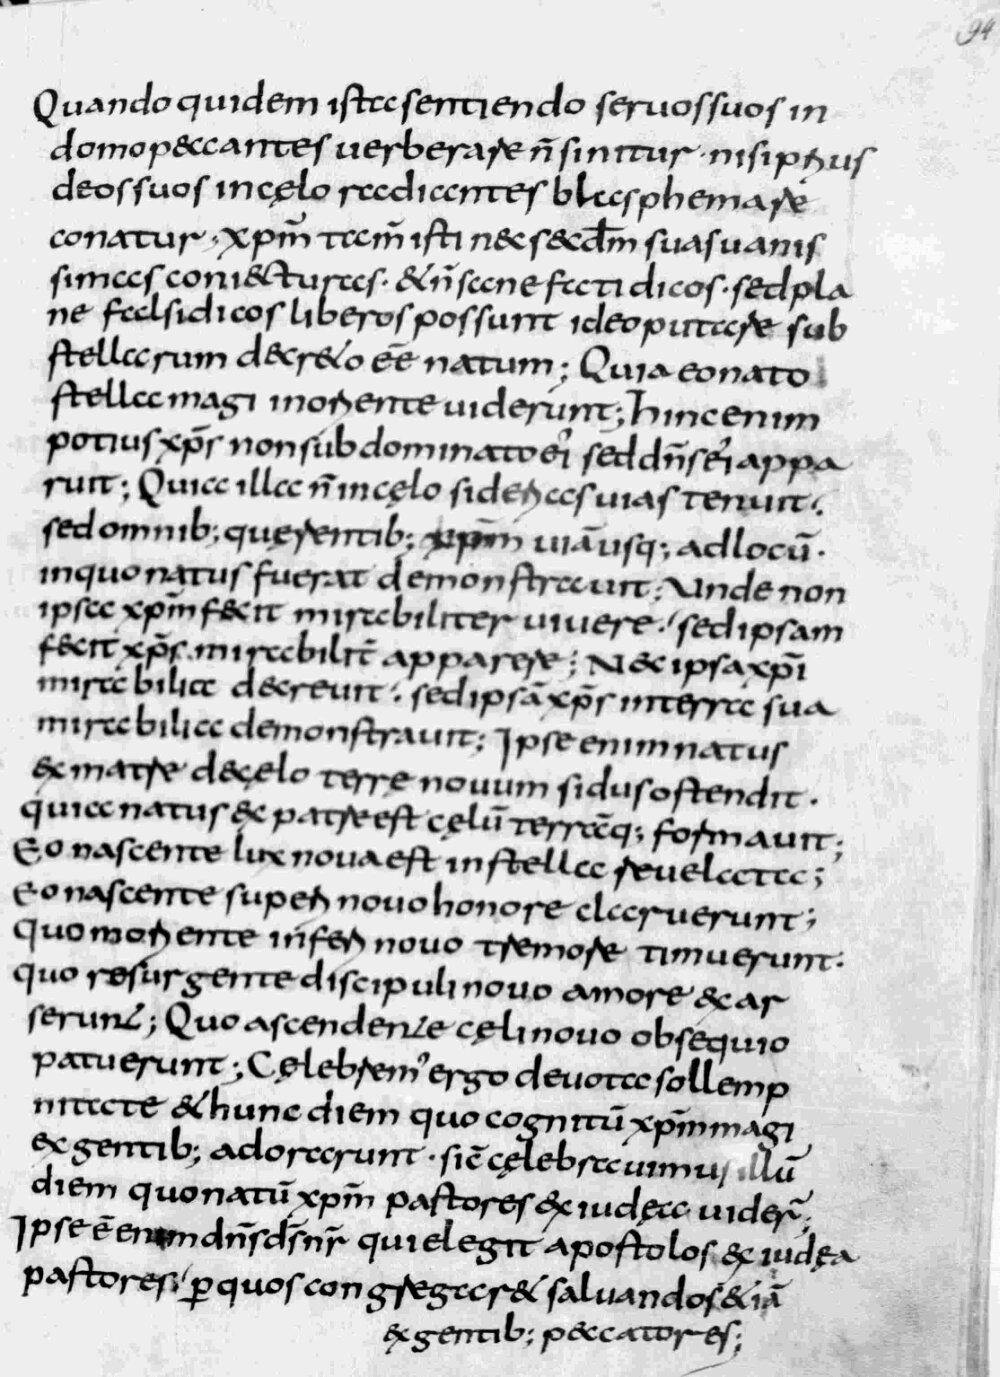 94
Quando quidem ista sentiendo seruos suos in
domo peccantes uerberare n̄ sinitur · nisi prius
deos suos in cęlo radiantes blasphemare
conatur · xpm̄ tam̄ isti nec secdm̄ suas uanis
simas coniecturas · & n̄ sane fatidicos · sed pla
ne falsidicos liberos possunt ideo putare sub
stellarum decr&o eē natum; Quia eo nato
stella magi in oriente uiderunt; hinc enim
potius xp̄s non sub dominato ei᾽ sed dn̄s ei᾽ appa
ruit; Quia illa n̄ in cęlo sidereas uias tenuit ·
sed omnib; quęrentib; xpm̄ uiā usq; ad locū ·
in quo natus fuerat demonstrauit; Unde non
ipsa xpm̄ fecit mirabiliter uiuere · sed ipsam
fecit xp̄s mirabilit̄ apparere; Nec ipsa xp̄i
mirabilia decreuit · sed ipsā xp̄s inter sua
mirabilia demonstrauit; Ipse enim natus
ex matre de cęlo terrę nouum sidus ostendit ·
quia natus ex patre est cęlū terrāq; formauit;
Eo nascente lux noua est in stella reuelata;
Eo nascente superi nouo honore claruerunt;
quo moriente inferi nouo tremore timuerunt ·
quo resurgente discipuli nouo amore exar
serunt; Quo ascendente cęli nouo obsequio
patuerunt; Cęlebrem᾽ ergo deuota sollemp
nitate & hunc diem quo cognitū xpm̄ magi
ex gentib; adorarunt · sic̄ cęlebrauimus illū
diem quo natū xpm̄ pastores ex iudęa uider̄;
Ipse ē enim dn̄s ds̄ nr̄ qui elegit apostolos ex iudęa
pastores · ꝑ quos congregar& saluandos & iā
ex gentib; peccatores;